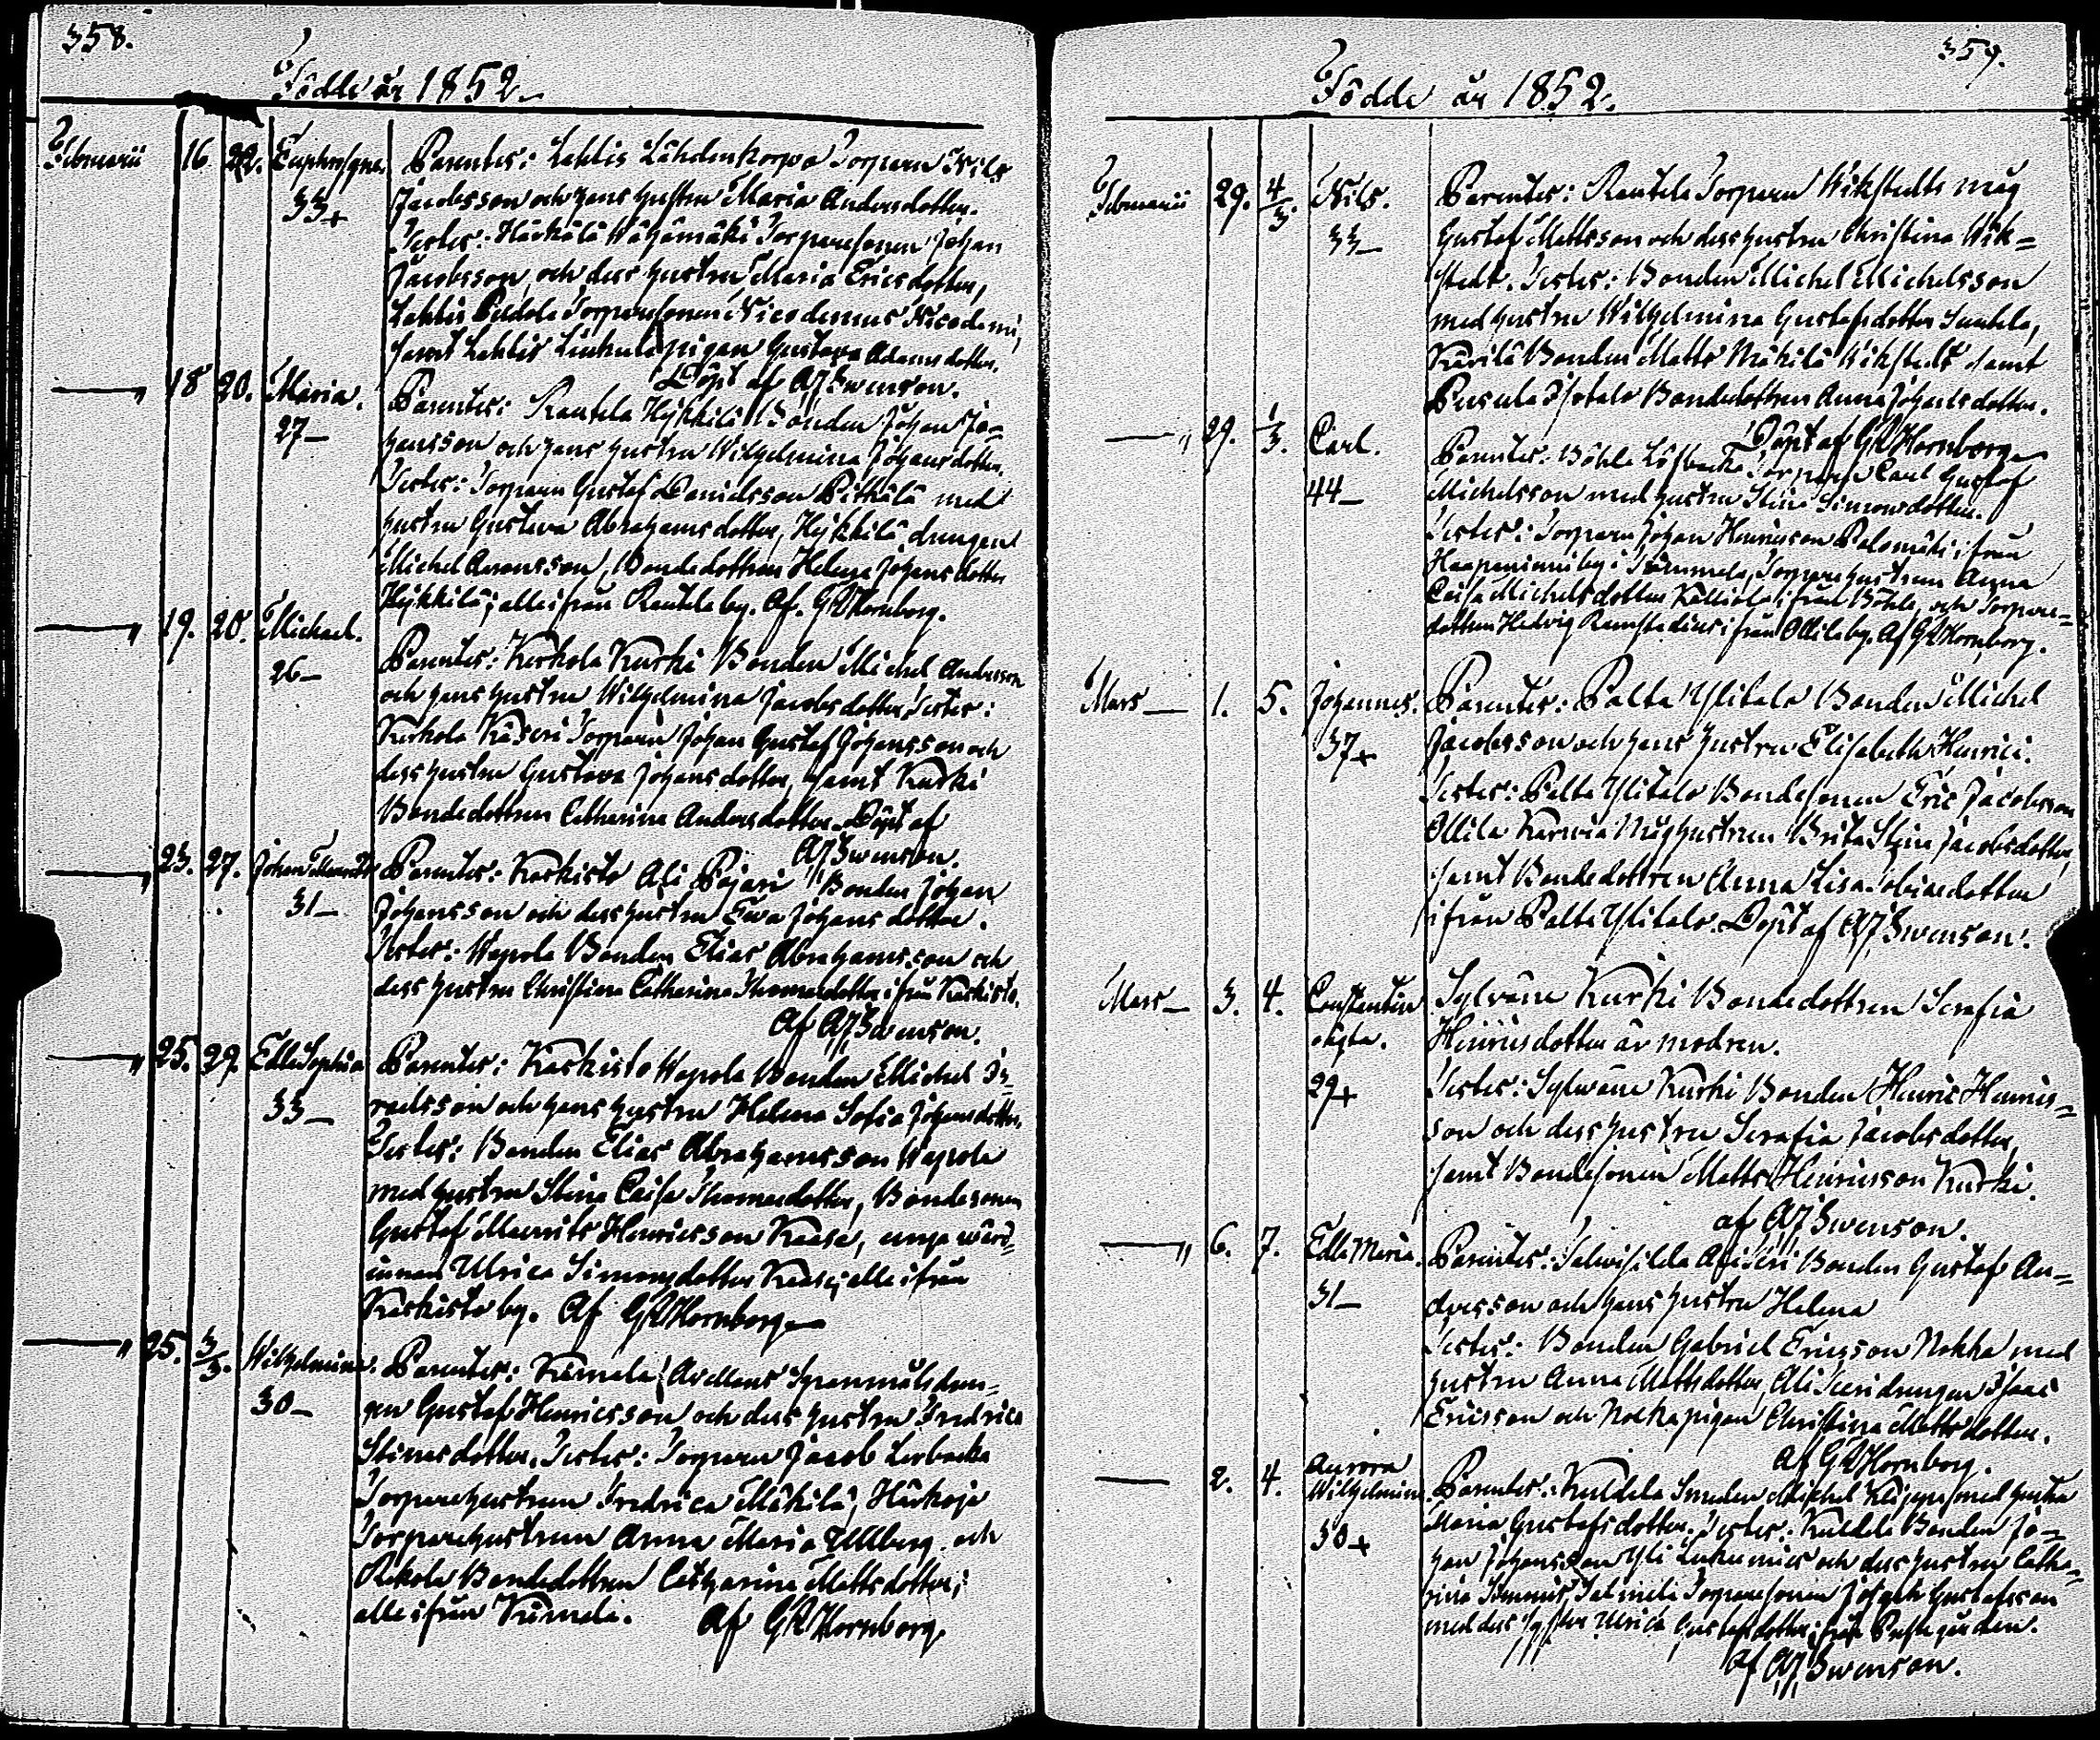 358.
Födde år 1852.
Februarii 16. 22. Euphrosyne. Parentes: Lahtis Lähdenkorpa Torparn Nils
33+ Jacobsson och hans hustru Maria Andersdotter.
Testes: Härkälä Wähämäki Torparesonen Johan
Jacobsson och dess hustru Maria Ericsdotter,
Lahtis Torparesonen Nicodemus Nicodemi,
samt Lahtis pigan Gustava Adamsdotter.
Döpt af AJ Swenson.
—„ 18 20. Maria. Parentes: Rautela Heikkilä Bonden Johan Jo-
27— hansson och hans hustru Wilhelmina Johansdotter.
Testes: Torparn Gustaf Danielsson Pitkälä med
hustru Gustava Abrahamsdotter, Heikkilä drängen
Michel Aronsson, Bondedottren Helena Johansdotter
Heikkilä; alle ifrån Rautela by. Af. GR Hornborg.
—„ 19. 20. Michael.
26— Parentes: Kerkola Kurki Bonden Michel Andersson
och hans hustru Wilhelmina Jacobsdotter. Testes:
Kerkola Torparn Johan Gustaf Johansson och
dess hustru Gustava Johansdotter, samt Kurki
Bondedottren Catharina Andersdotter. Döpt af
AJ Swenson.
—„ 23. 27. Johan Mauritz Parentes: Karkisto Ali Pajari Bonden Johan
31— Johansson och dess hustru Eva Johansdotter.
Testes: Wepola Bonden Elias Abrahamsson och
dess hustru Christina Catharina Thomasdotter ifrån Karkisto.
Af AJ Swenson.
—„ 25. 29. Edla Sophia Parentes: Karkisto Wepola Bonden Michel Is-
33— raelsson och hans hustru Helena Sofia Johansdotter.
Testes: Bonden Elias Abrahamsson Wepola
med hustru Stina Caisa Thomasdotter, Bondesonen
Gustaf Maurits Henricsson Kaase, unga wärd-
innan Ulrica Simonsdotter Kaase; alle ifrån
Karkisto by. Af GR Hornborg
—„ 25. 3/3. Wilhelmina. Parentes: Kämala Avellans Spanmålsdrän-
30— gen Gustaf Henricsson och dess hustru Fredrica
Stinasdotter. Testes: Torparn Jacob Lerbacka
Torparehustrun Fredrica Mäkilä, Härkoja
Torparehustrun Anna Maria Ullberg, och
Rekola Bondedottren Catharina Mattsdotter;
alle ifrån Kämala. Af GR Hornborg.
359.
Födde år 1852.
Februarii 29. 4/3. Nils. Parentes: Rautela Torparn Wikstedts måg
33— Gustaf Mattsson och dess hustru Christina Wik-
stedt. Testes: Bonden Michel Michelsson
med hustru Wilhelmina Gustafsdotter Santala,
Bonden Matts Mäkilä Wikstedt samt
Pusula Isotalo Bondedottren Anna Johansdotter.
Döpt af GR Hornborg
—„ 29. 1/3. Carl. Parentes: Böhle Löfbacka Carl Gustaf
44— Michelsson med hustru Stina Simonsdotter.
Testes: Torparn Johan Henricsson Palomäki ifrån
Haapaniemi by i Sammola, Torparehustrun Anna
Caisa Michelsdotter Kalliola ifrån Böhle, och Torpare-
dottren Hedvig Ramstadius ifrån Ollila by. Af GR Hornborg.
Mars— 1. 5. Johannes. Parentes: Palta Ylitalo Bonden Michel
37+ Jacobsson och hans hustru Elisabeth Henrici.
Testes: Palta Ylitalo Bondesonen Eric Jacobsson
Ollila Karvia Måghustrun Brita Stina Jacobsdotter,
samt Bondedottren Anna Lisa Tobiasdotter
ifrån Palta Ylitalo. Döpt af AJ Swenson.
Mars— 3. 4. Constantin Sylväne Kurki Bondedottren Serafia
oägta. Henricsdotter är modren.
29+ Testes: Sylwäne Kurki Bonden Henric Henrics-
son och dess hustru Serafia Jacobsdotter,
samt Bondesonen Matts Henricsson Kurki.
af AJ Swenson.
—„ 6. 7. Edla Maria. Parentes: Bonden Gustaf An-
31— dersson och hans hustru Helena
Testes: Bonden Gabriel Ericsson Nokka med
hustru Anna Mattsdotter, Ali Seeri drängen Isaac
Ericsson och Nokka pigan Christina Mattsdotter.
Af GR Hornborg.
— 2. 4. Aurora
Wilhelmina Parentes: Kuldela Smeden Michel med hustru
30+ Maria Gustafsdotter. Testes: Kuldela Bonden Jo-
han Johansson Yli och dess hustru Catha-
rina Torparesonen Joseph Gustafsson
med dess syster Ulrica Gustafsdotter ifrån Prestegården.
af AJ Swenson.